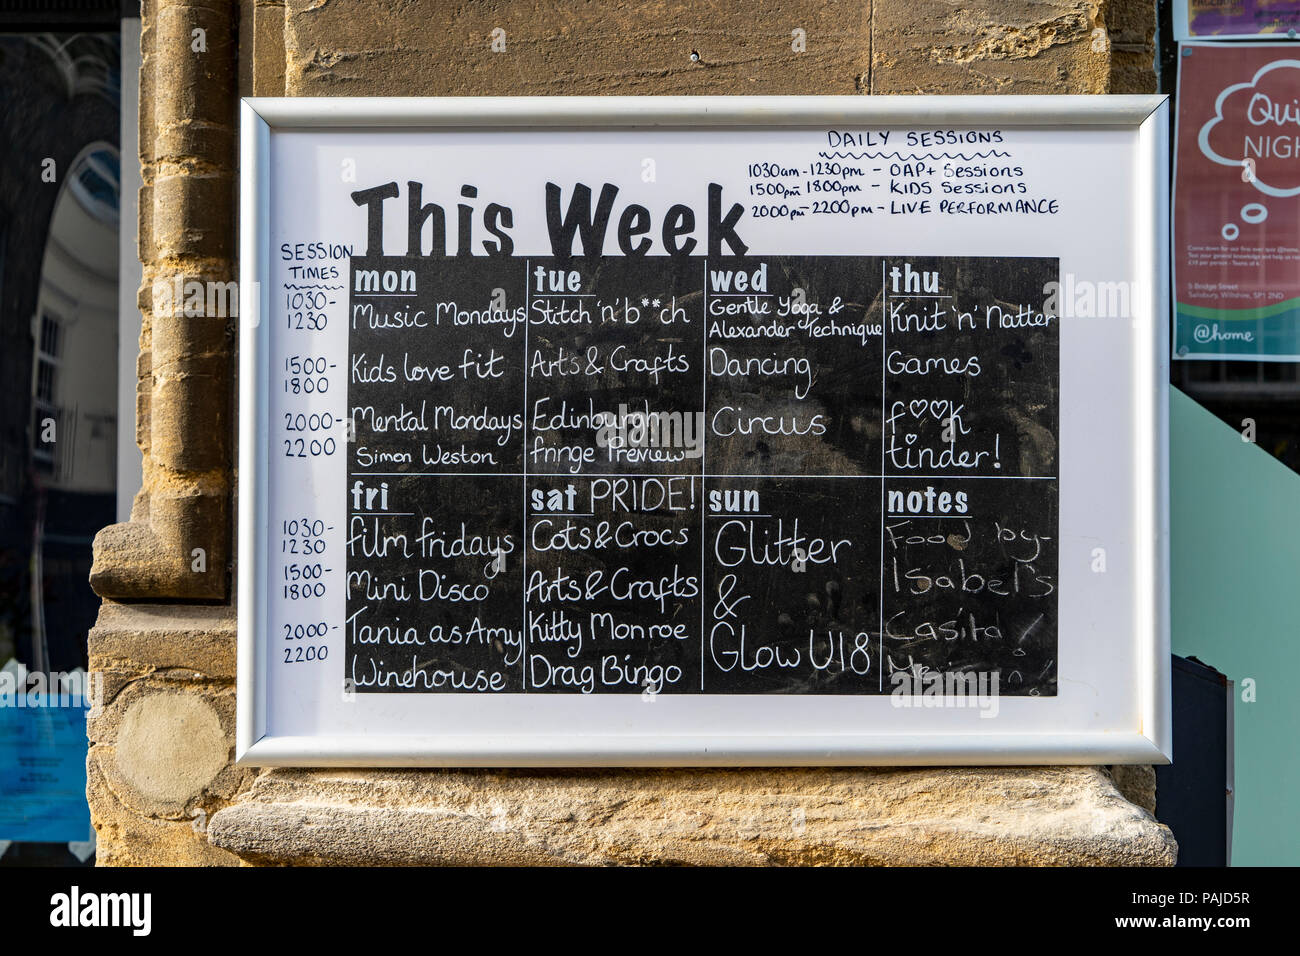 DAILY SESSIONS
1030am-1230pm - OAP+ Sessions
1500pm 1800pm - KIDS Sessions
2000pm-2200pm - LIVE PERFORMANCE
This Week
SESSION
TIMES
1030-
1230
1500-
1800
2000-
2200
mon
Music Mondays
Kids love fit
Mental Mondays
Simon Weston
tue
Stitch 'n' b**ch
Arts & Crafts
Edinburgh
fringe Preview
wed
Gentle Yoga &
Alexander Technique
Dancing
Circus
thu
Knit 'n' Natter
Games
f♡♡k
tinder!
1030-
1230
1500-
1800
2000-
2200
fri
film fridays
Mini Disco
Tania as Amy
Winehouse
sat PRIDE!
Cots & Crocs
Arts & Crafts
Kitty Monroe
Drag Bingo
sun
Glitter
&
Glow U18
notes
Food by-
Isabel's
Casita
Qui
NIGH
5 Bridge Street
Salisbury, Wiltshire, SP1 2ND
@home
alamy
Image ID: PAJD5R
www.alamy.com